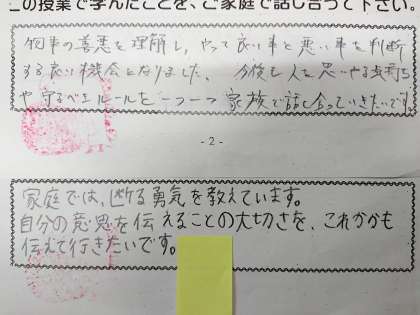 この授業で学んだことを、ご家庭で話し合って下さい。
物事の善悪を理解し、やって良い事と悪い事を判断
する良い機会になりました。 今後も人を思いやる気持ち
や守るべきルールを一つ一つ家族で話し合っていきたいです。
- 2 -
家庭では、断る勇気を教えています。
自分の意思を伝えることの大切さを、これからも
伝えて行きたいです。